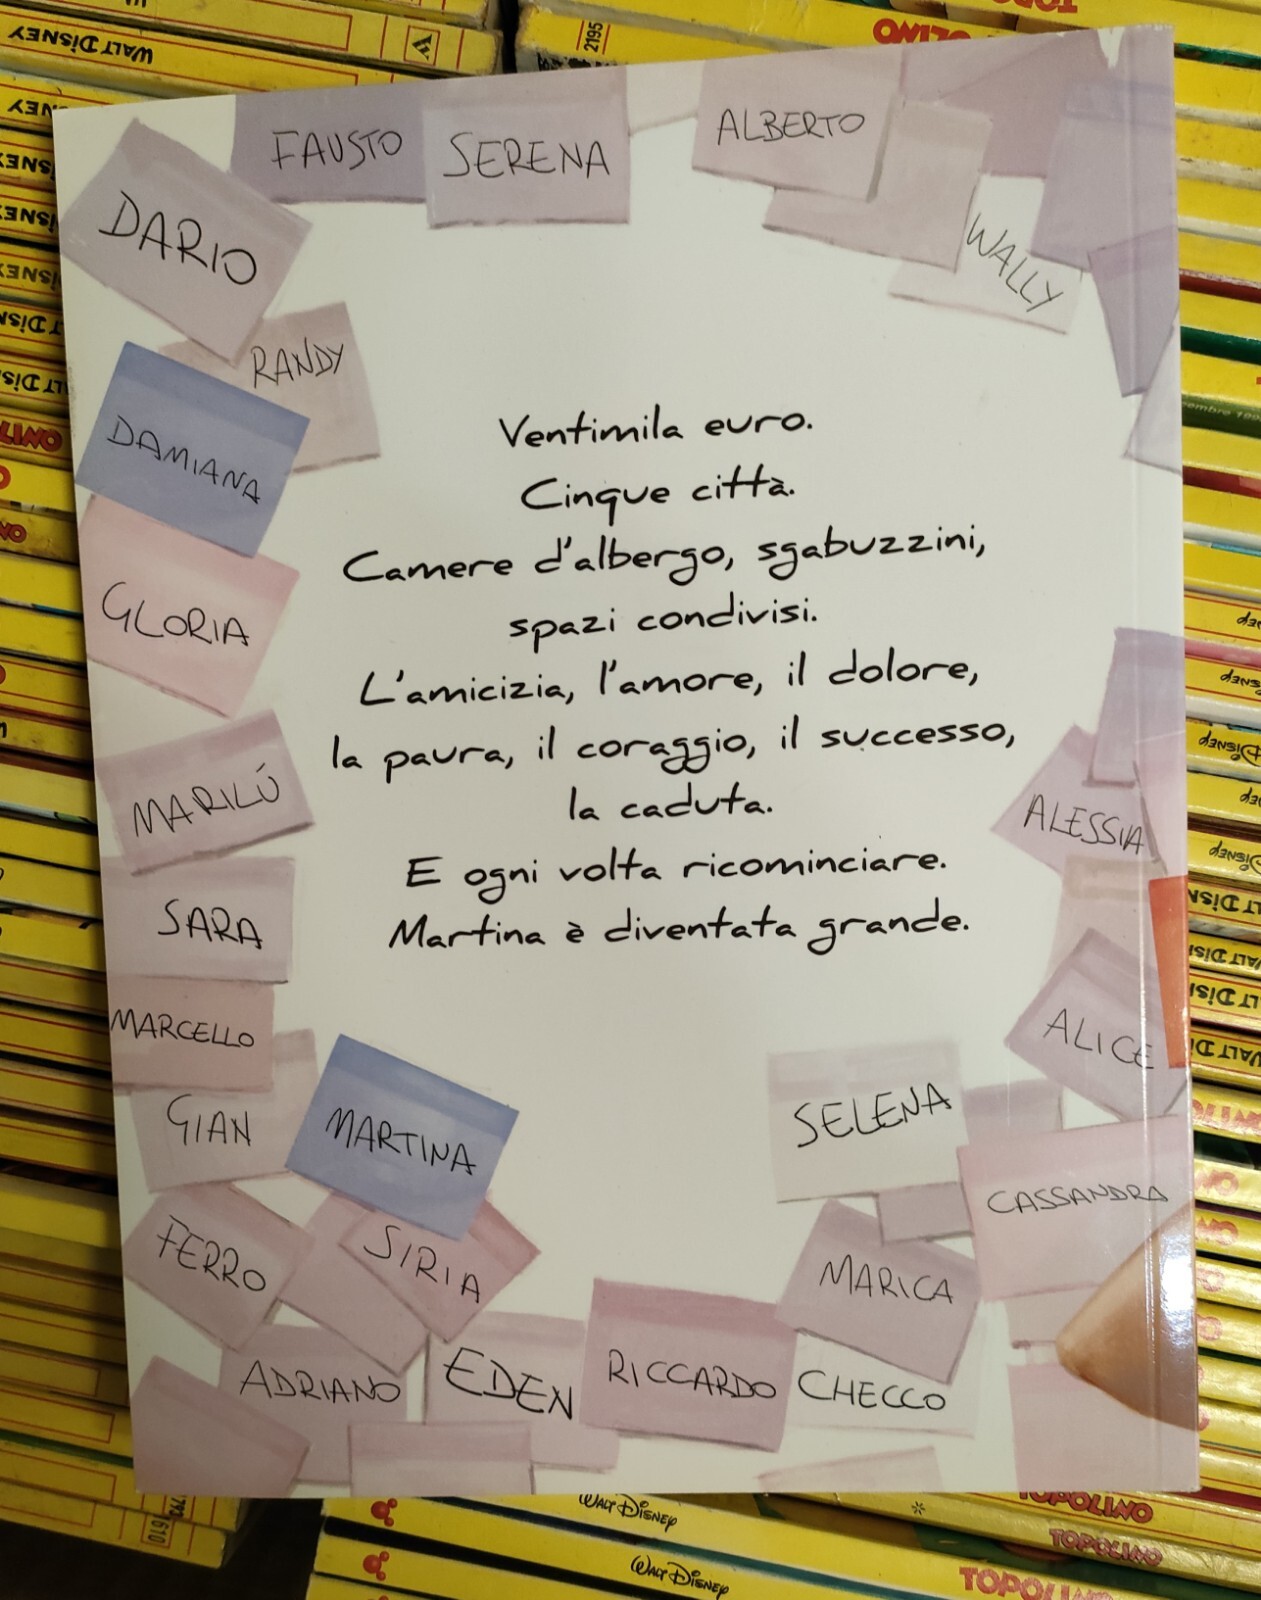 WALT DISNEY
2195
TOPOLINO
FAUSTO
SERENA
ALBERTO
DARIO
WALLY
RANDY
DAMIANA
Ventimila euro.
Cinque città.
Camere d'albergo, sgabuzzini,
spazi condivisi.
L'amicizia, l'amore, il dolore,
la paura, il coraggio, il successo,
la caduta.
E ogni volta ricominciare.
Martina è diventata grande.
GLORIA
MARILÚ
ALESSIA
SARA
MARCELLO
ALICE
GIAN
MARTINA
SELENA
CASSANDRA
FERRO
SIRIA
MARICA
ADRIANO
EDEN
RICCARDO
CHECCO
WALT DISNEY
TOPOLINO
TOPOLINO
1610
WALT DISNEY
TOPOLINO